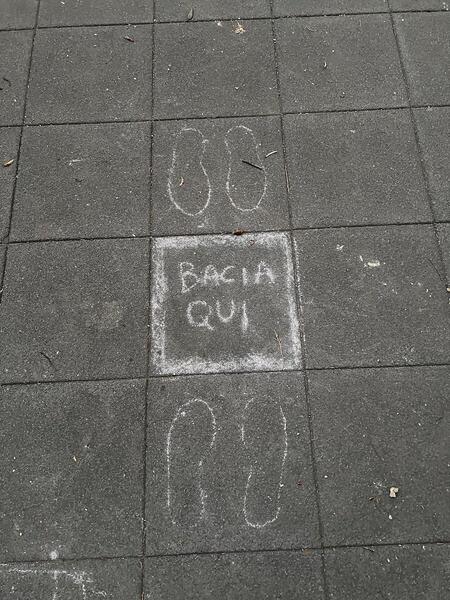 BACIA
QUI